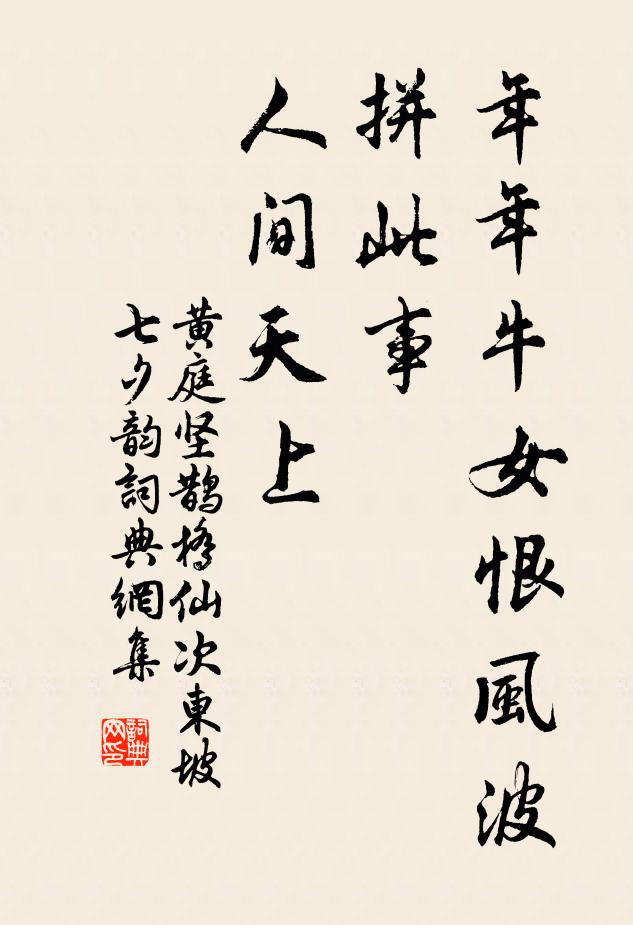 年年牛女恨風波
拼此事
人间天上
黄庭坚鹊橋仙次東坡
七夕韵詞典網集
詞典网印